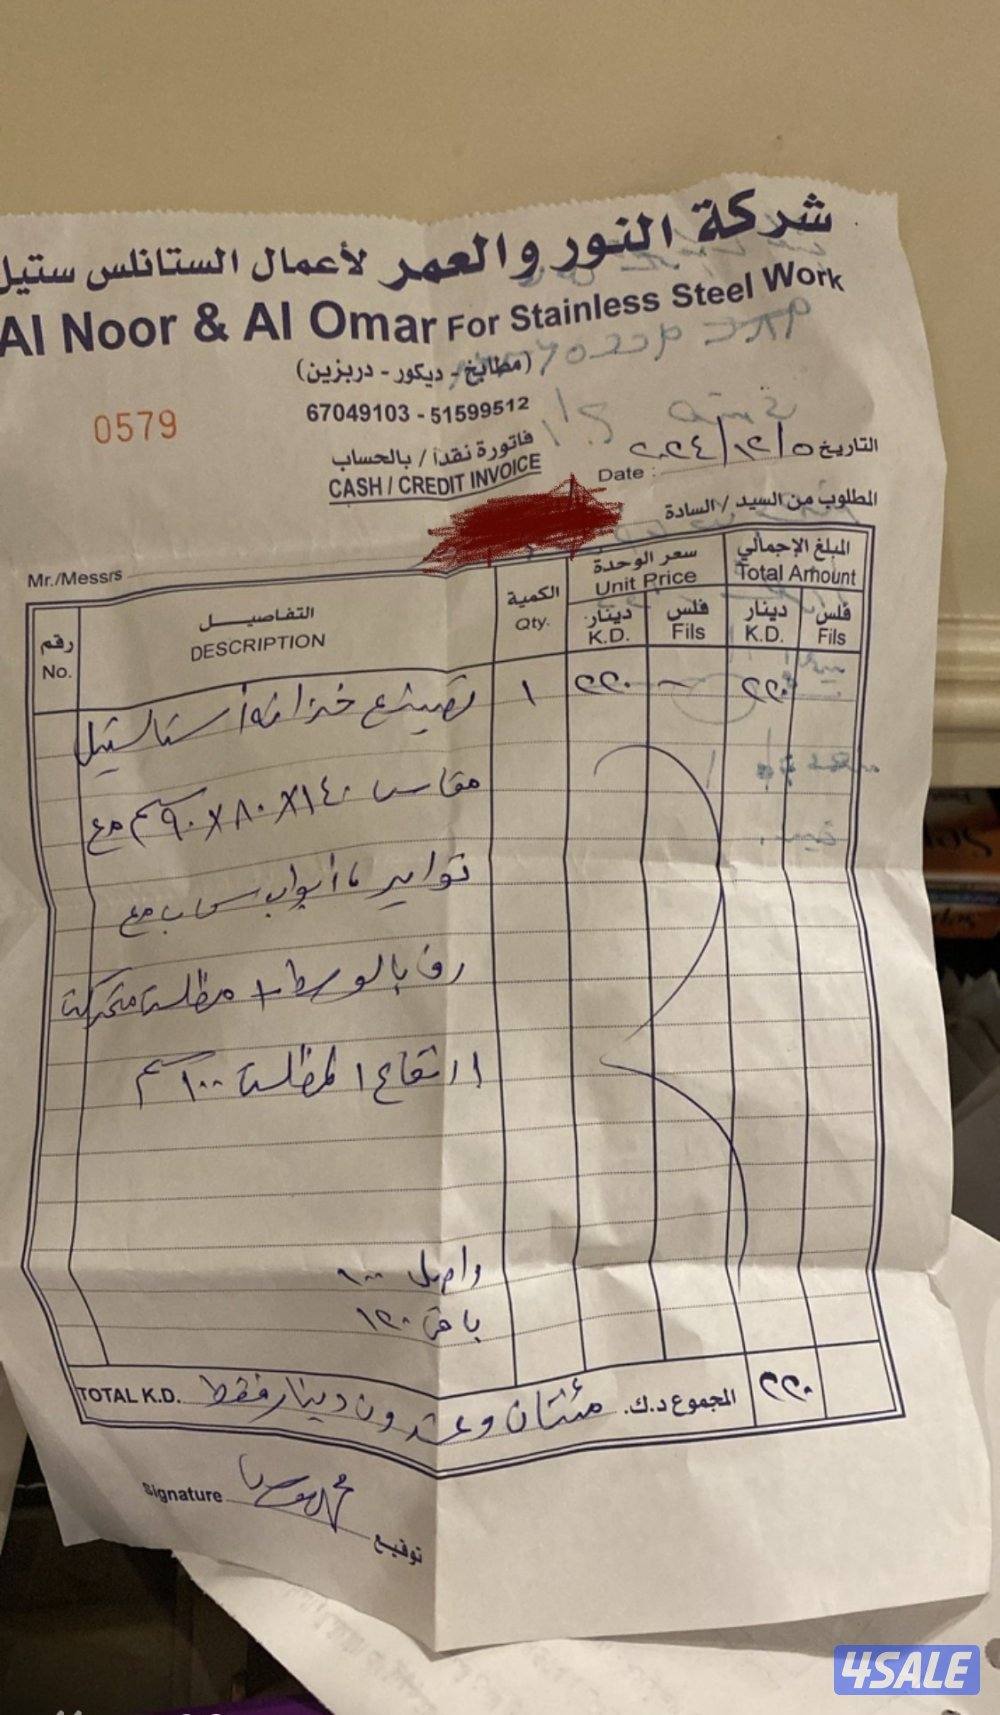 شركة النور والعمر لأعمال الستانلس ستيل
Al Noor & Al Omar For Stainless Steel Work
(مطابخ - ديكور - دربزين)
67049103 - 51599512
0579
فاتورة نقداً / بالحساب
CASH / CREDIT INVOICE
التاريخ ٢٠٢٤/١٢/٥
Date :
المطلوب من السيد / السادة
Mr./Messrs
رقم التفاصيـــل الكمية سعر الوحدة المبلغ الإجمالي
No. DESCRIPTION Qty. Unit Price Total Amount
دينار فلس دينار فلس
K.D. Fils K.D. Fils
تصنيع خزانة استانلستيل ١ ٢٢٠ - ٢٢٠
مقاس ١٤٠X٨٠X٩٠ سم مع
تواير ٤ أبواب سحاب مع
رف بالوسط + مظلة متحركة
ارتفاع المظلة ١٠٠ سم
واصل ١٠٠
باقي ١٢٠
TOTAL K.D. مئتان وعشرون دينار فقط المجموع د.ك. ٢٢٠
Signature توقيع
4SALE